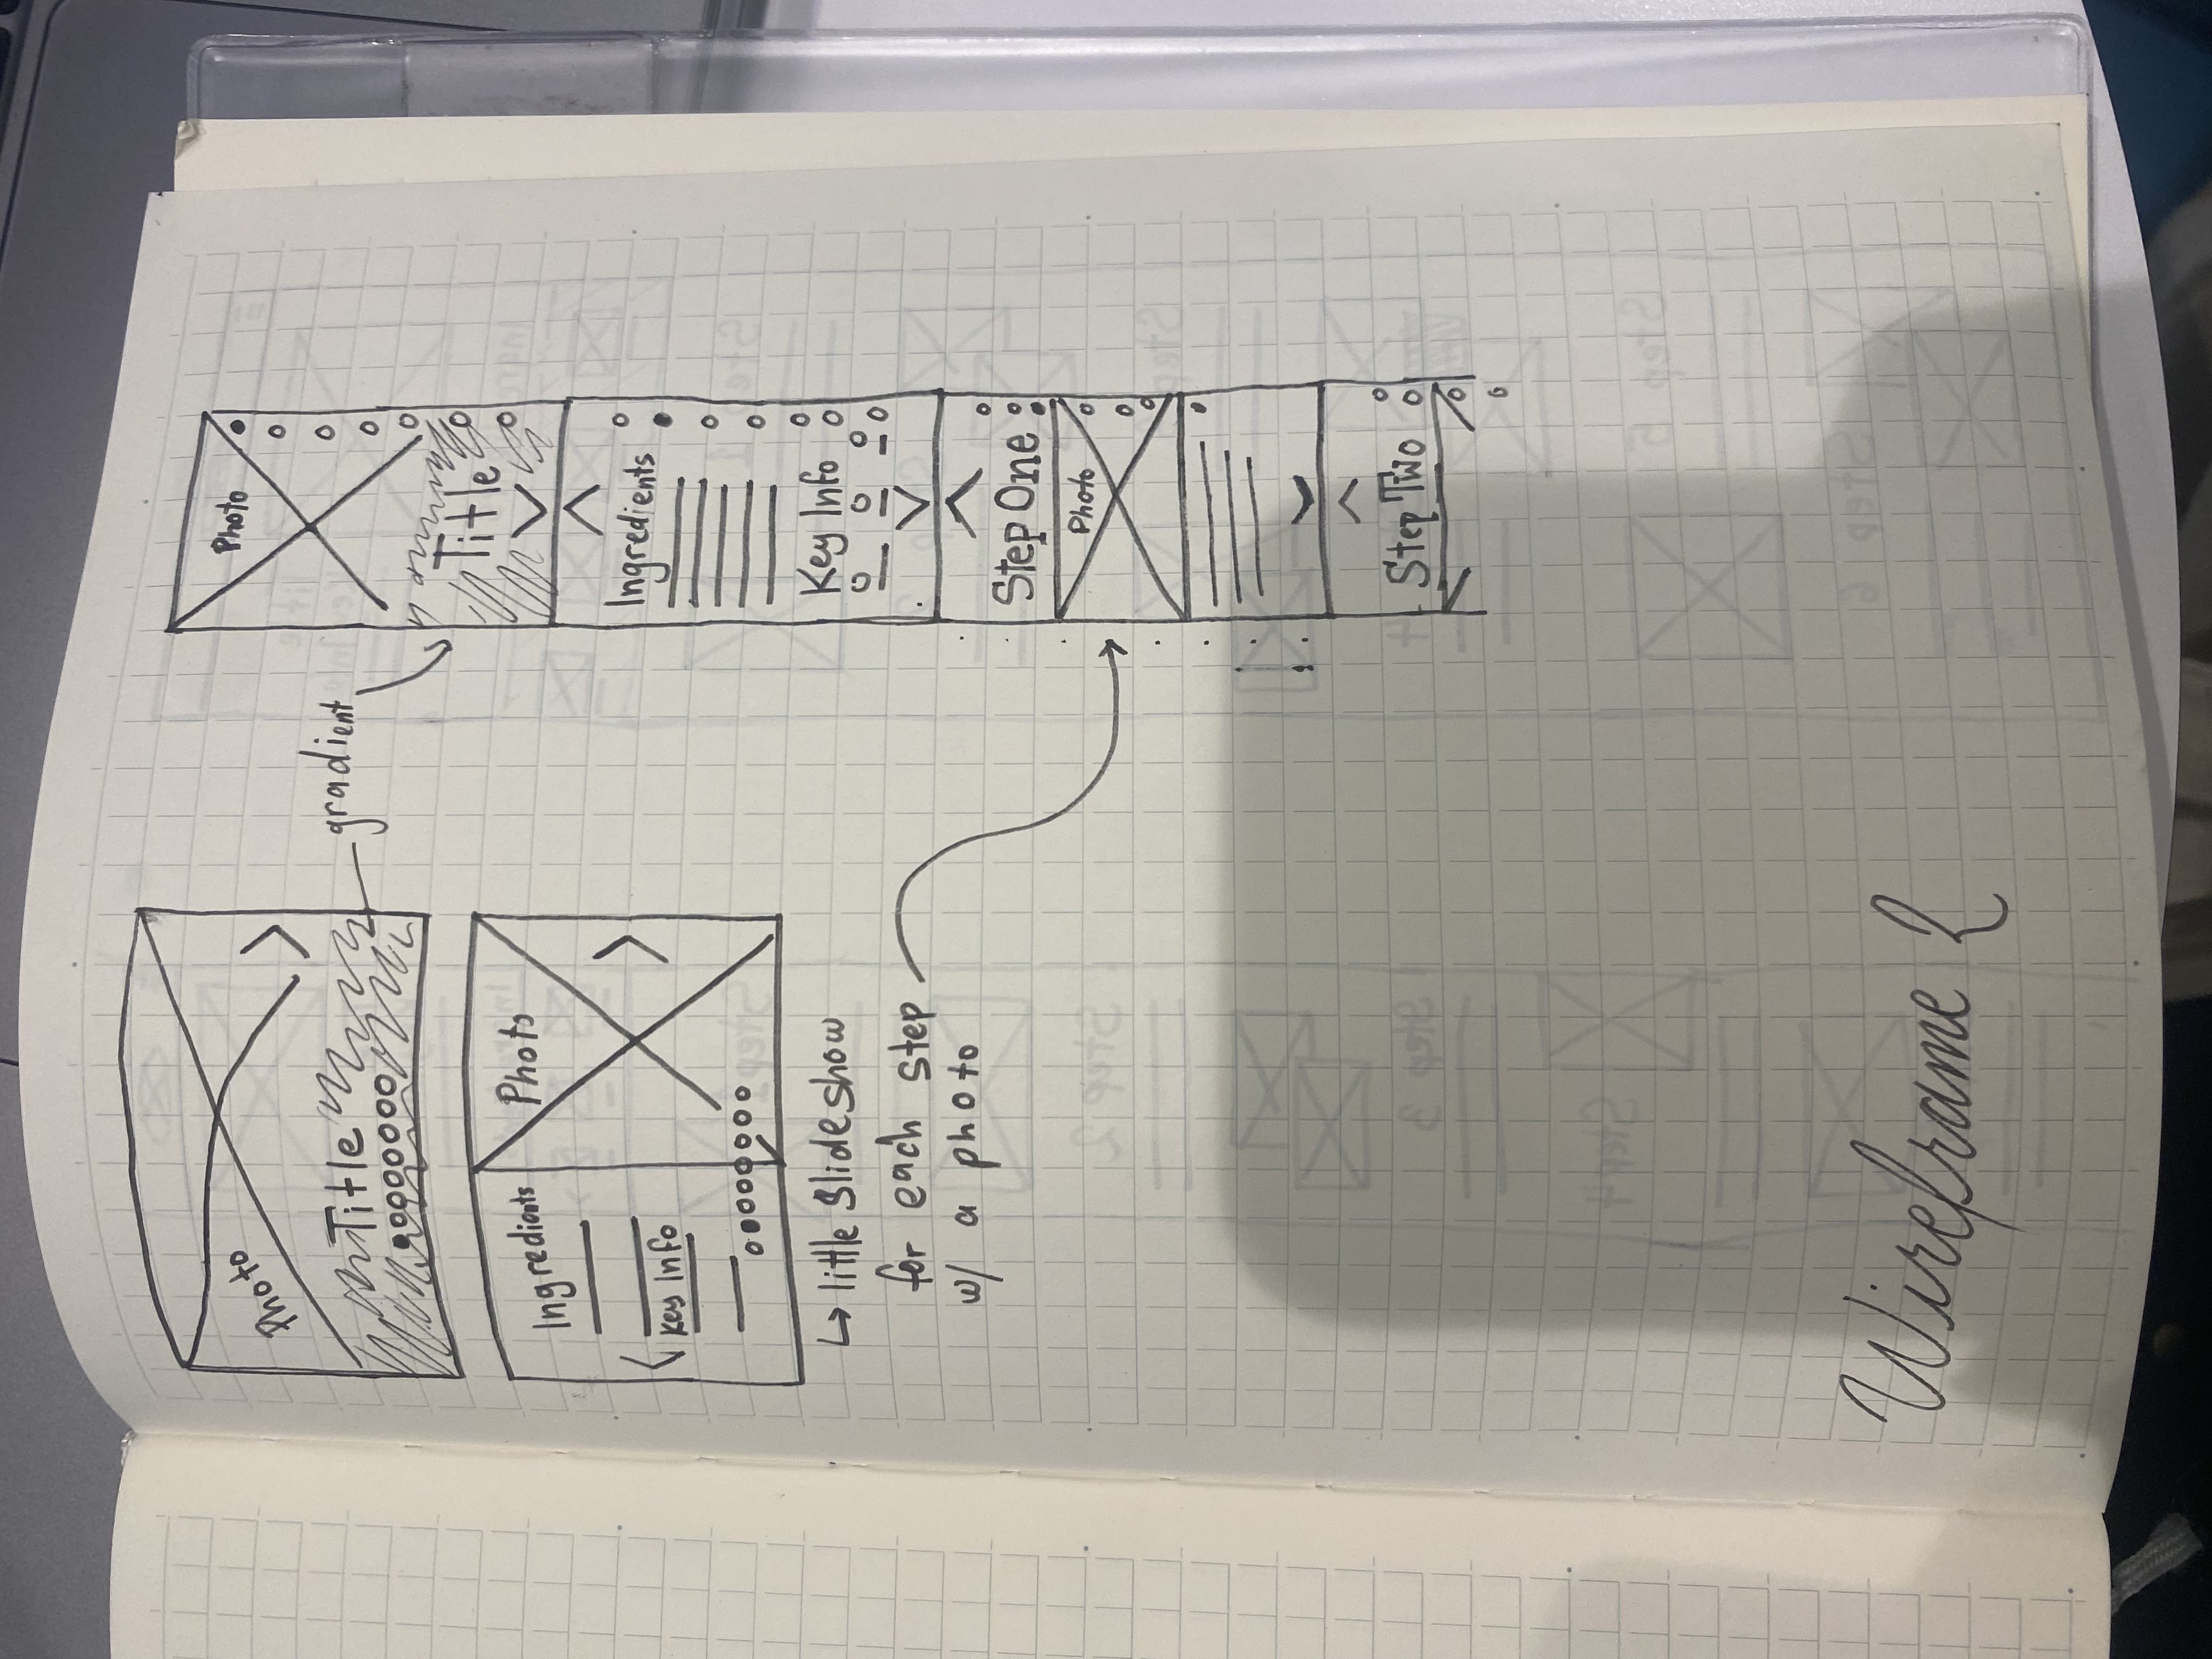 Photo
Title
gradient
Ingredients
Key Info
Photo
↳ little slideshow
for each step
w/ a photo
Photo
Title
Ingredients
Key Info
Step One
Photo
Step Two
Wireframe 2